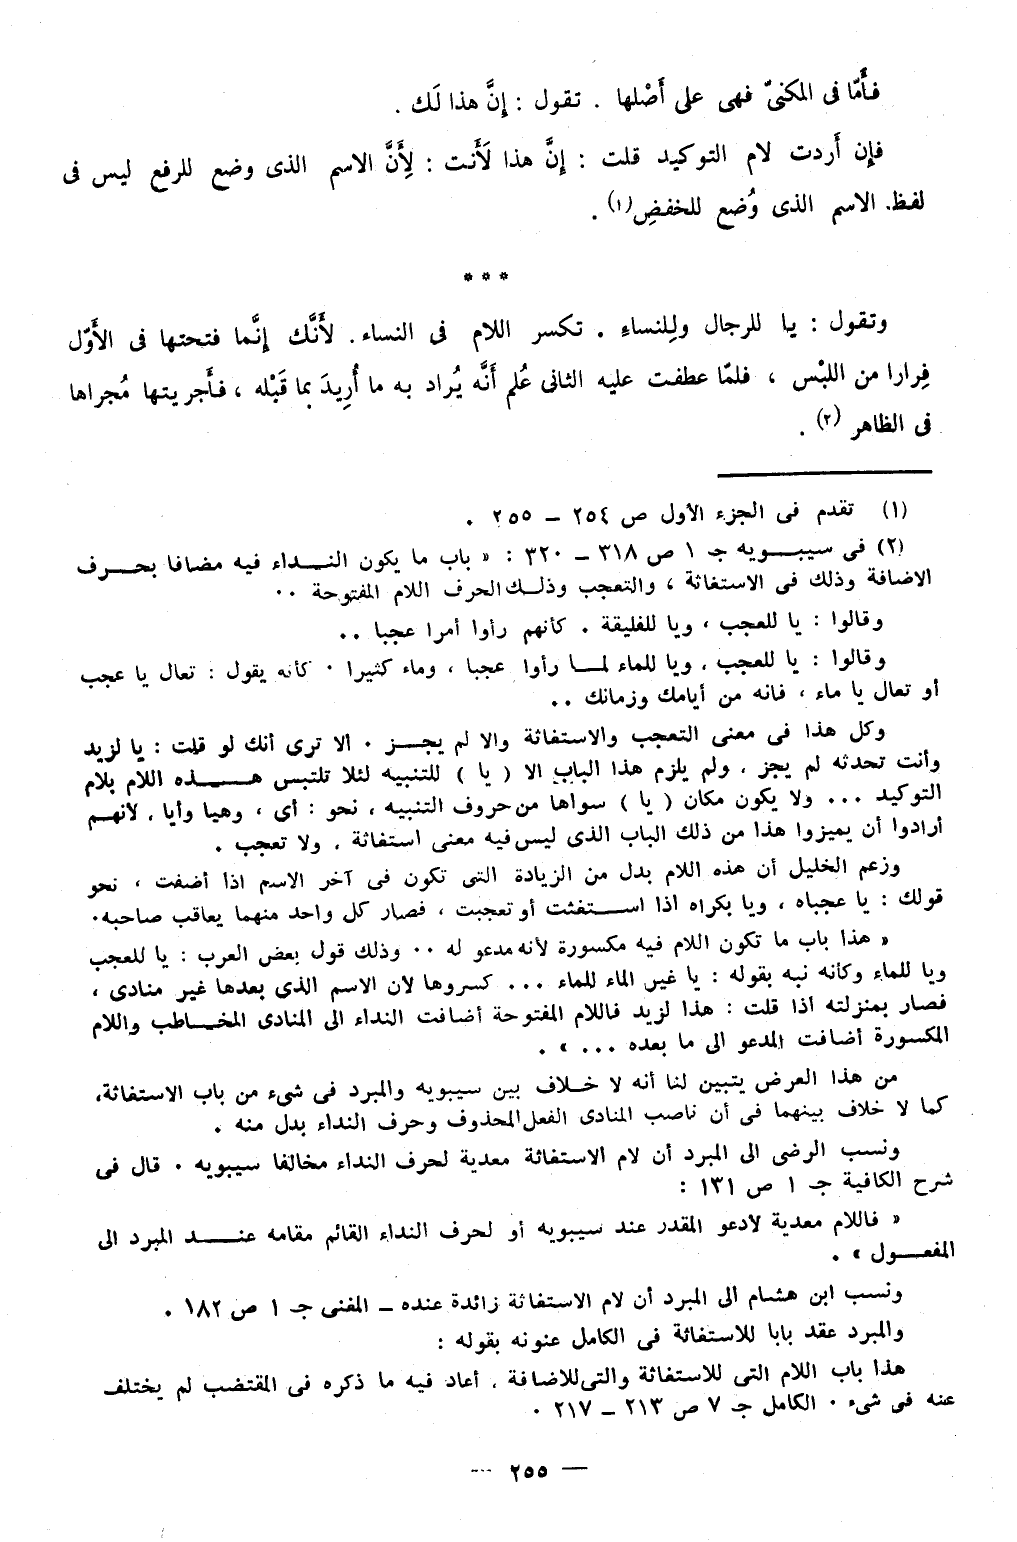 فأَمّا فى المكنىّ فهى على أَصْلها . تقول : إنَّ هذا لَك .
فإِن أَردت لام التوكيد قلت : إنَّ هذا لَأَنت : لِأَنَّ الاسم الذى وضع للرفع ليس فى
لفظ. الاسم الذى وُضع للخفضِ(١) .
* * *
وتقول : يا للرجال ولِلنساءِ . تكسر اللام فى النساء. لأَنَّك إنَّما فتحتها فى الأَوّل
فِرارا من اللبْس ، فلمّا عطفت عليه الثانى عُلم أَنَّه يُراد به ما أُرِيدَ بما قَبْله ، فأَجريتها مُجراها
فى الظاهر (٢) .
(١) تقدم فى الجزء الأول ص ٢٥٤ – ٢٥٥ .
(٢) فى سيبويه جـ ١ ص ٣١٨ – ٣٢٠ : « باب ما يكون النداء فيه مضافا بحرف
الاضافة وذلك فى الاستغاثة ، والتعجب وذلك الحرف اللام المفتوحة ..
وقالوا : يا للعجب ، ويا للفليقة . كأنهم رأوا أمرا عجبا ..
وقالوا : يا للعجب ، ويا للماء لما رأوا عجبا ، وماء كثيرا . كأنه يقول : تعال يا عجب
أو تعال يا ماء ، فانه من أيامك وزمانك ..
وكل هذا فى معنى التعجب والاستغاثة والا لم يجز . الا ترى أنك لو قلت : يا لزيد
وأنت تحدثه لم يجز ، ولم يلزم هذا الباب الا ( يا ) للتنبيه لئلا تلتبس هذه اللام بلام
التوكيد ... ولا يكون مكان ( يا ) سواها من حروف التنبيه ، نحو : أى ، وهيا وأيا ، لأنهم
أرادوا أن يميزوا هذا من ذلك الباب الذى ليس فيه معنى استغاثة ، ولا تعجب .
وزعم الخليل أن هذه اللام بدل من الزيادة التى تكون فى آخر الاسم اذا أضفت ، نحو
قولك : يا عجباه ، ويا بكراه اذا استغثت أو تعجبت ، فصار كل واحد منهما يعاقب صاحبه.
« هذا باب ما تكون اللام فيه مكسورة لأنه مدعو له .. وذلك قول بعض العرب : يا للعجب
ويا للماء وكأنه نبه بقوله : يا غير الماء للماء ... كسروها لان الاسم الذى بعدها غير منادى ،
فصار بمنزلته اذا قلت : هذا لزيد فاللام المفتوحة أضافت النداء الى المنادى المخاطب واللام
المكسورة أضافت المدعو الى ما بعده ... » .
من هذا العرض يتبين لنا أنه لا خلاف بين سيبويه والمبرد فى شىء من باب الاستغاثة،
كما لا خلاف بينهما فى أن ناصب المنادى الفعل المحذوف وحرف النداء بدل منه .
ونسب الرضى الى المبرد أن لام الاستغاثة معدية لحرف النداء مخالفا سيبويه . قال فى
شرح الكافية جـ ١ ص ١٣١ :
« فاللام معدية لادعو المقدر عند سيبويه أو لحرف النداء القائم مقامه عند المبرد الى
المفعول » .
ونسب ابن هشام الى المبرد أن لام الاستغاثة زائدة عنده – المغنى جـ ١ ص ١٨٢ .
والمبرد عقد بابا للاستغاثة فى الكامل عنونه بقوله :
هذا باب اللام التى للاستغاثة والتى للاضافة . أعاد فيه ما ذكره فى المقتضب لم يختلف
عنه فى شىء . الكامل جـ ٧ ص ٢١٣ – ٢١٧ .
— ٢٥٥ —